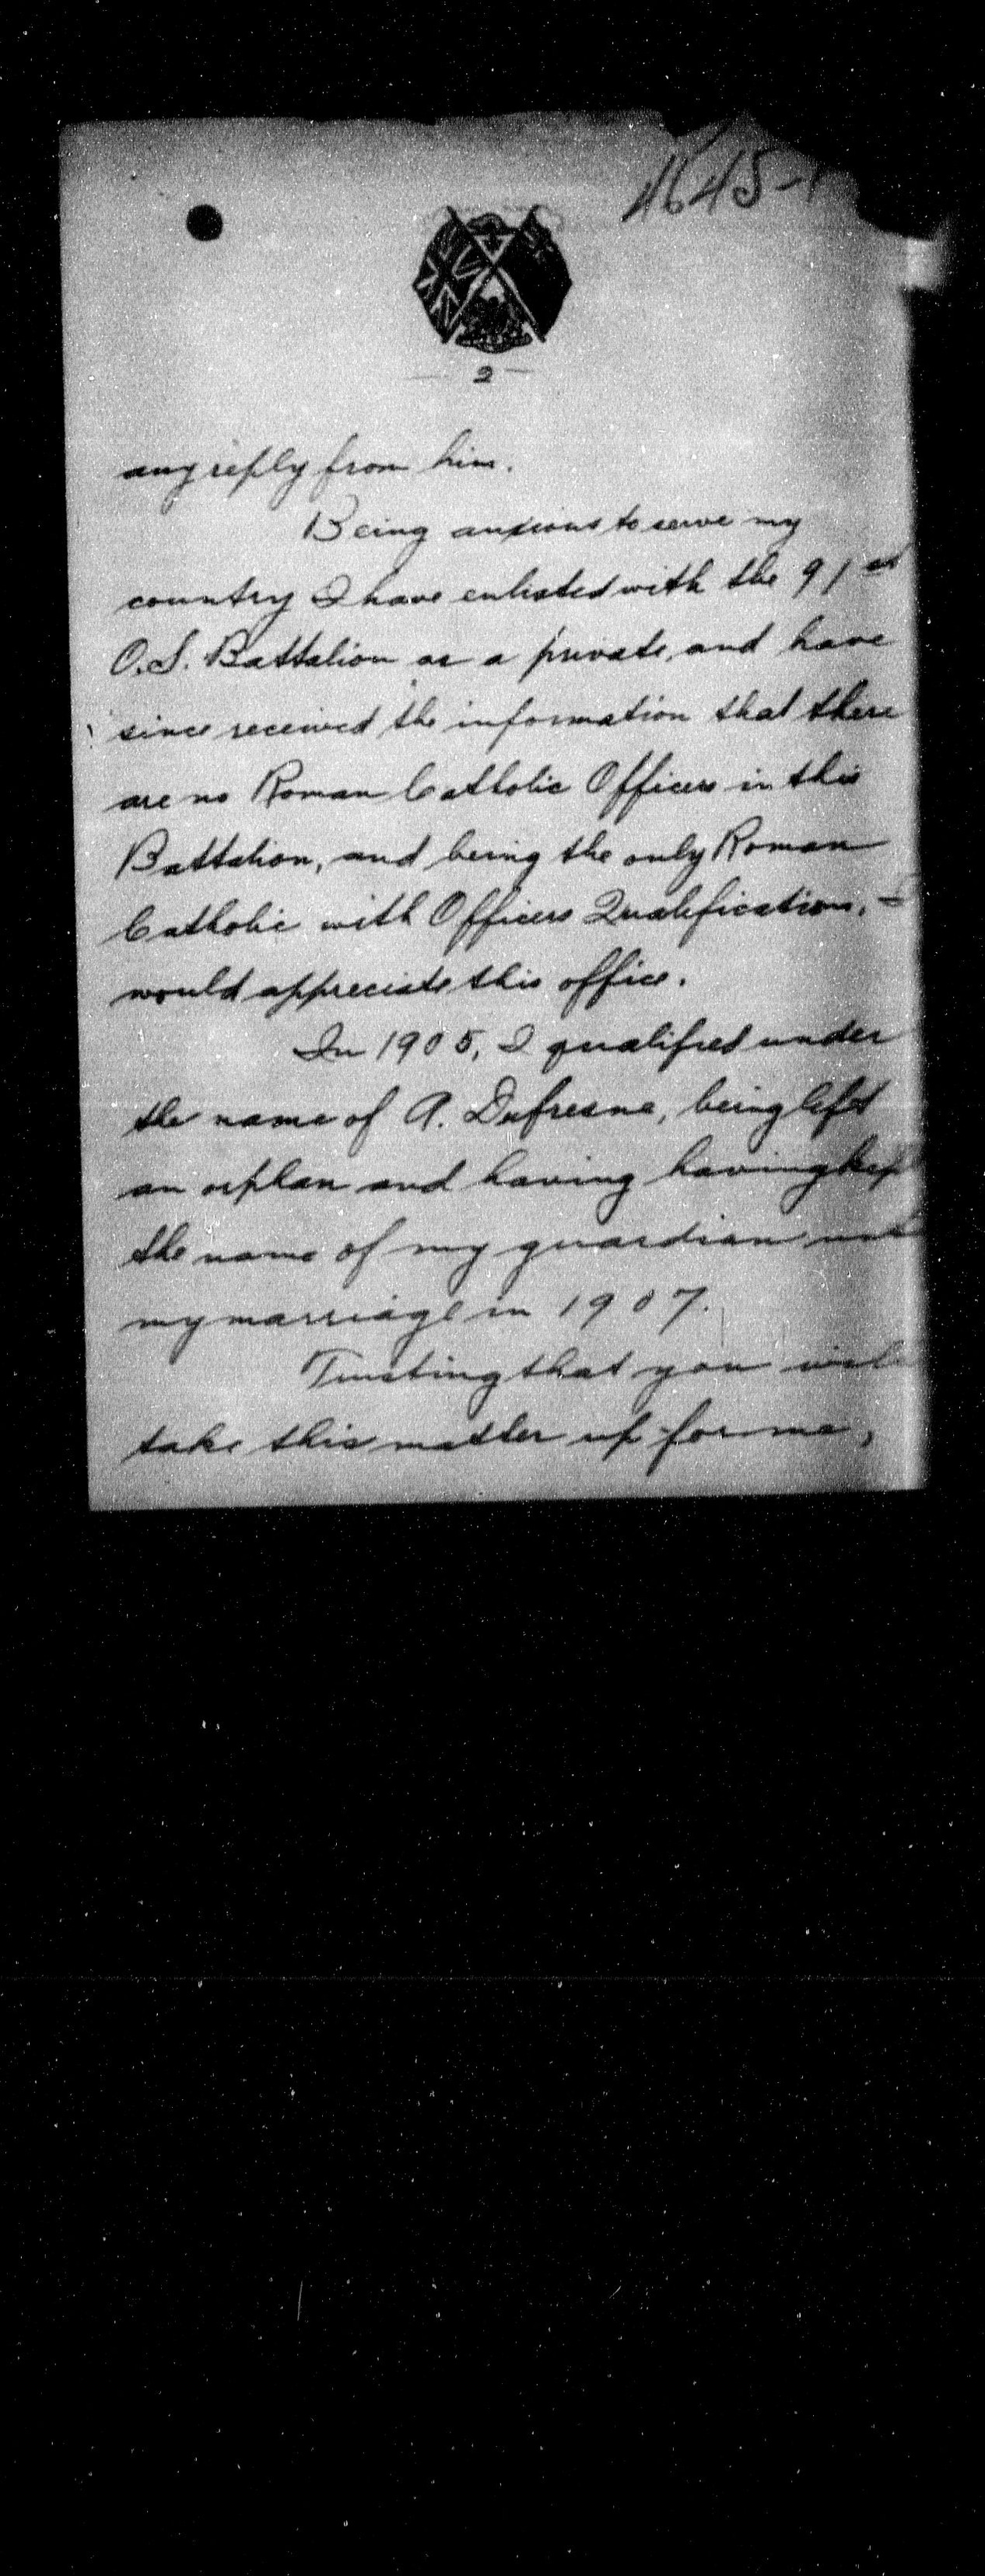 4645-1
2
any reply from him.
Being anxious to serve my
country I have enlisted with the 91st
O.S. Battalion as a private, and have
since received the information that there
are no Roman Catholic Officers in this
Battalion, and being the only Roman
Catholic with Officers Qualifications, I
would appreciate this office.
In 1905, I qualified under
the name of A. Dufresne, being left
an orphan and having having kept
the name of my guardian until
my marriage in 1907.
Trusting that you will
take this matter up for me,